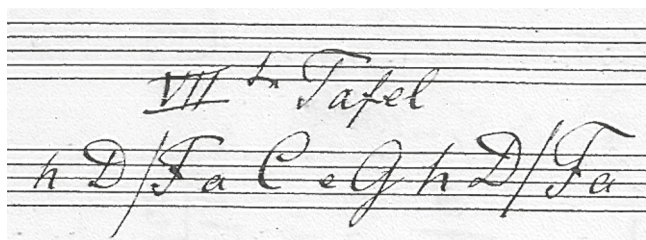 VIIte Tafel
h D / F a C e G h D / F a